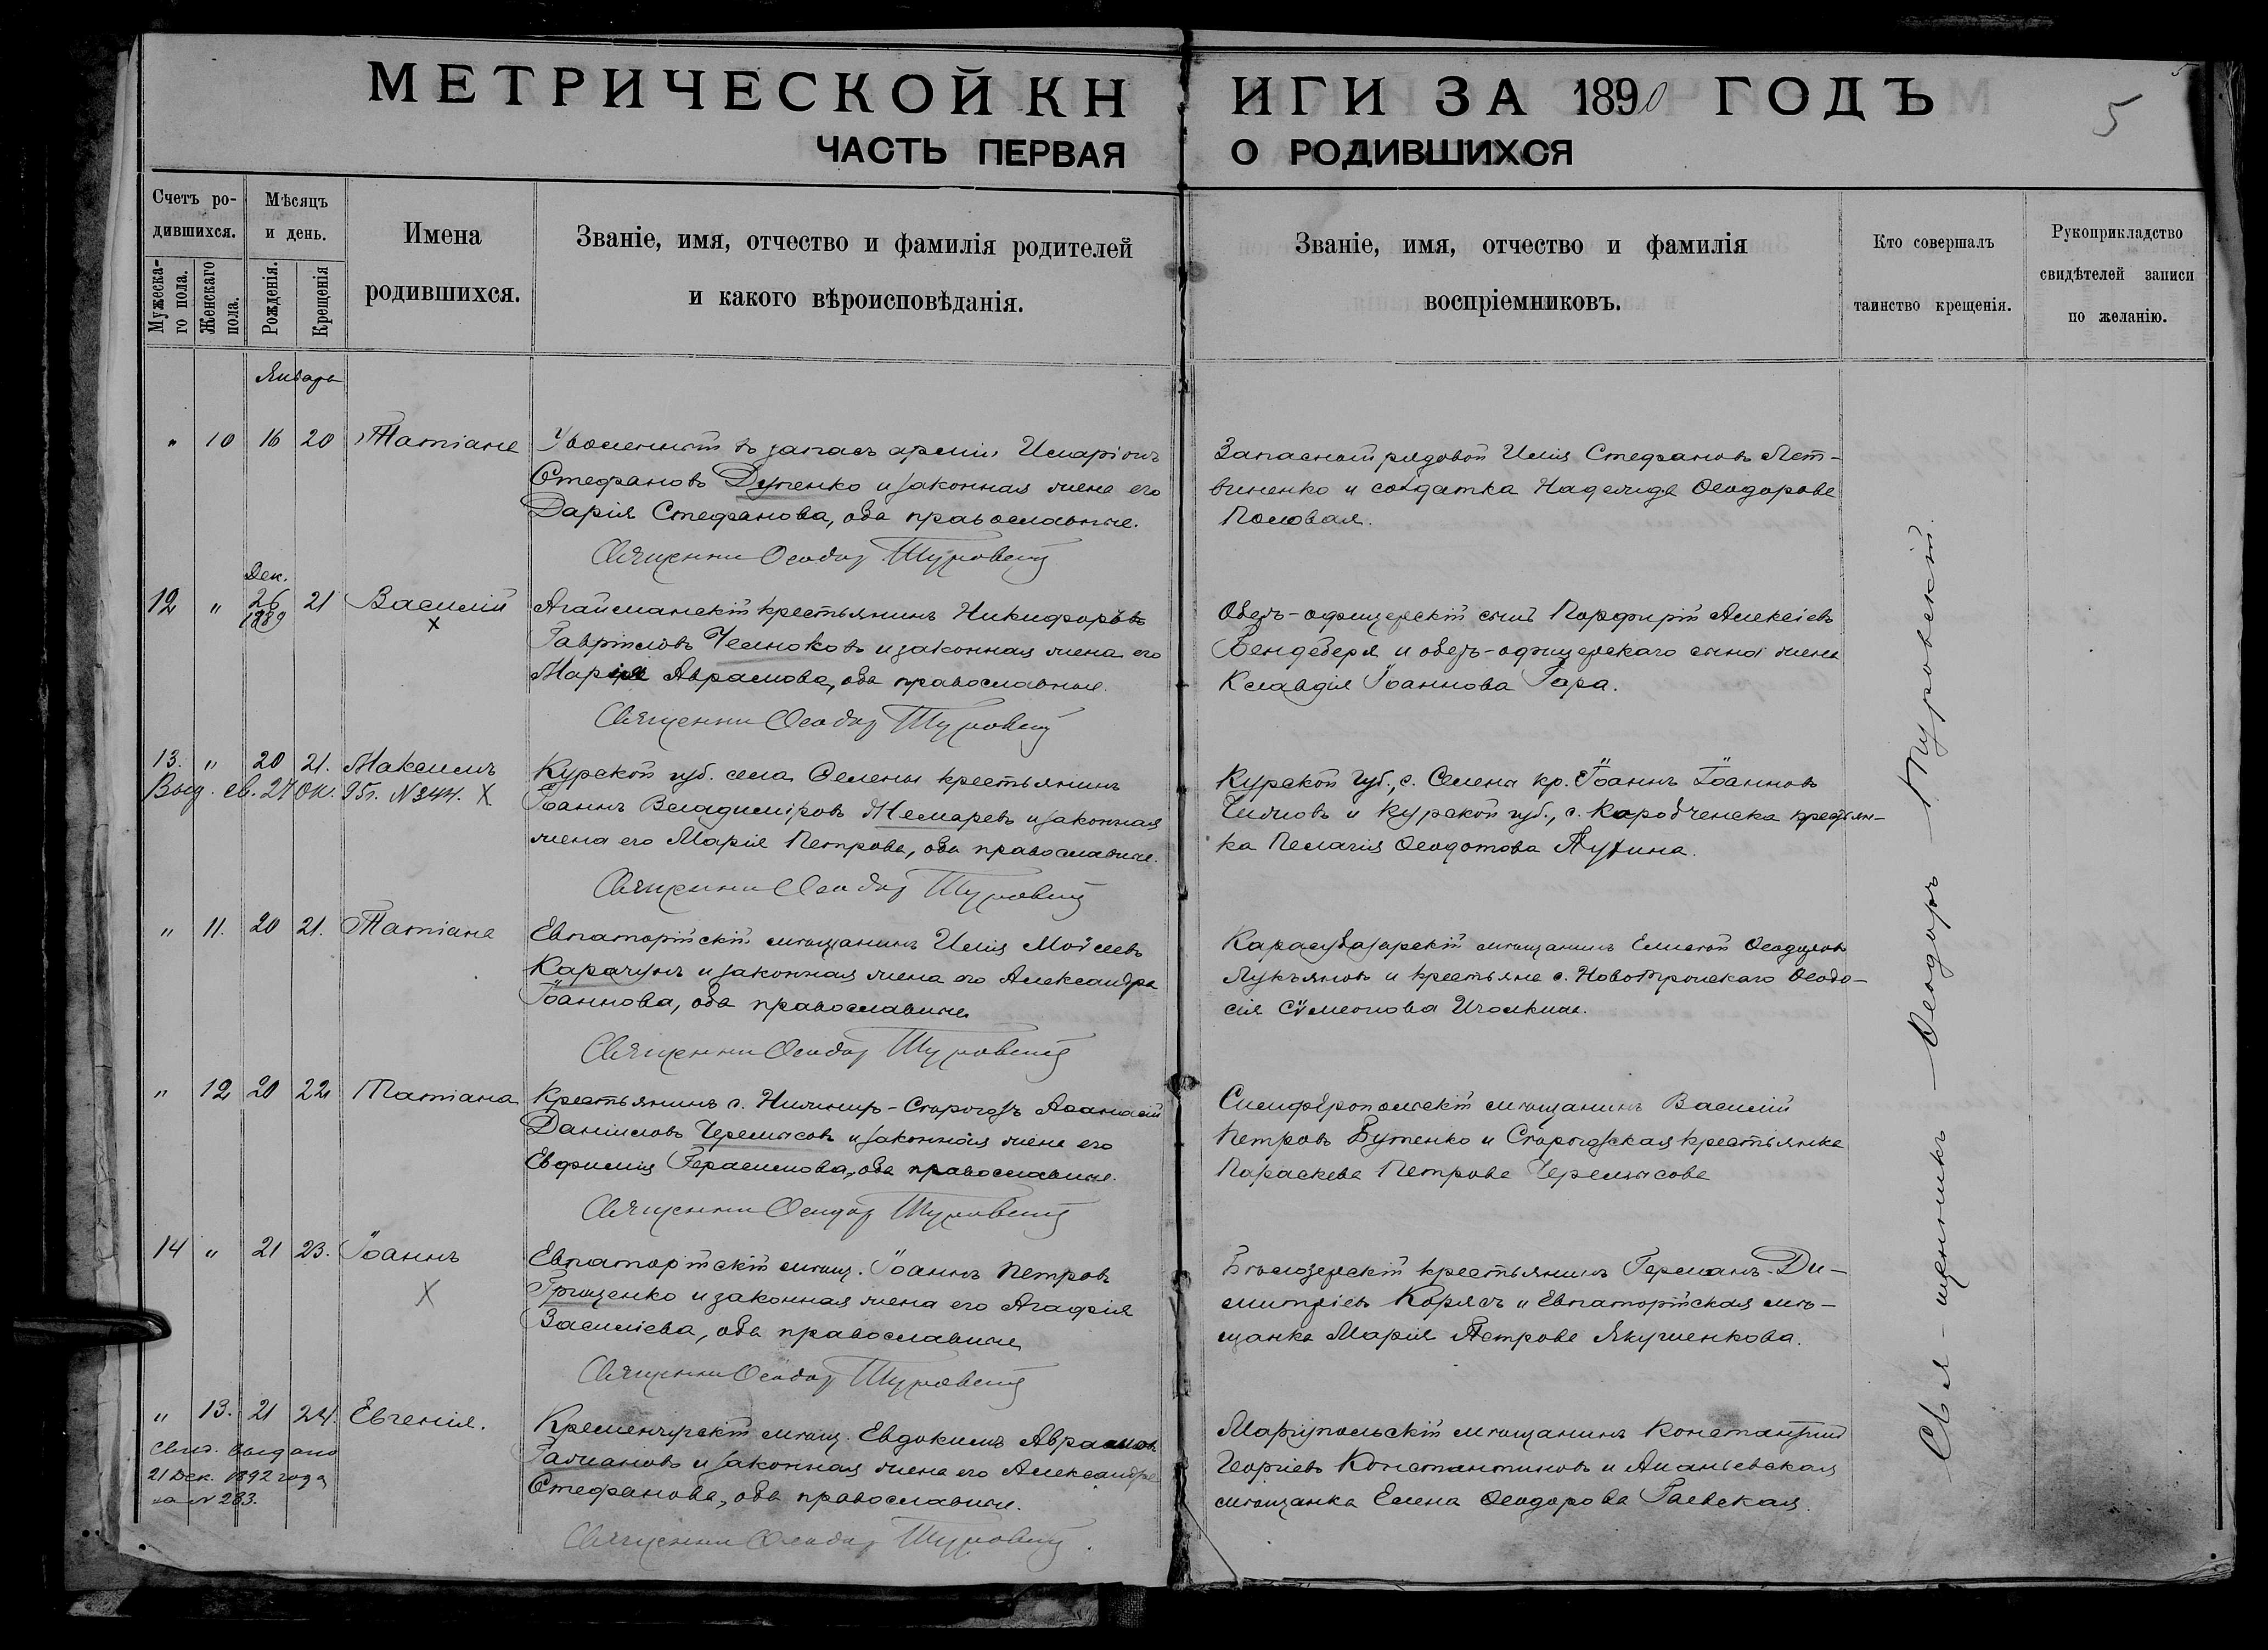 МЕТРИЧЕСКОЙ КНИГИ ЗА 1890 ГОДЪ
5
ЧАСТЬ ПЕРВАЯ О РОДИВШИХСЯ
Счетъ ро-
дившихся.
Мужеска-
го пола.
Женскаго
пола.
Мѣсяцъ
и день.
Рожденія.
Крещенія
Имена
родившихся.
Званіе, имя, отчество и фамилія родителей
и какого вѣроисповѣданія.
Званіе, имя, отчество и фамилія
воспріемниковъ.
Кто совершалъ
таинство крещенія.
Рукоприкладство
свидѣтелей записи
по желанію.
Январь
" 10 16 20 Татіана
Уволенный въ запасъ арміи Иларіонъ
Стефановъ Дутенко и законная жена его
Дарія Стефанова, оба православные.
Священник Ѳеодор Туровский
Запасной рядовой Илія Стефановъ Лит-
виненко и солдатка Надежда Ѳеодорова
Половая.
12 " Дек. 26 1889 21 Василій
X
Агайманскій крестьянинъ Никифоръ
Гавріиловъ Челноковъ и законная жена его
Марія Аврамова, оба православные.
Священник Ѳеодор Туровский
Оберъ-офицерскій сынъ Порфирій Алексіевъ
Бендеберя и оберъ-офицерскаго сына жена
Клавдія Іоаннова Гора.
13. " 20 21. Максимъ
Выд. св. 27 Ок. 95г. N 344. X
Курской губ. села Селены крестьянинъ
Іоаннъ Владиміровъ Жемаревъ и законная
жена его Марія Петрова, оба православные.
Священник Ѳеодор Туровский
Курской губ., с. Селена кр. Іоаннъ Іоанновъ
и Курской губ., с. Коробченска крестьян-
ка Пелагія Ѳеодотова
" 11. 20 21. Татіана
Евпаторійскій мѣщанинъ Илія Моисеевъ
Карачунъ и законная жена его Александра
Іоаннова, оба православные
Священник Ѳеодор Туровский
Карасубазарскій мѣщанинъ Елисей Ѳеодуловъ
Лукьяновъ и крестьянка с. Новотроицкаго Ѳеодо-
сія Сѵмеонова
" 12 20 22 Татіана
Крестьянинъ с. Аѳанасій
Даніиловъ Черемисовъ и законная жена его
Евфимія Герасимова, оба православные.
Священник Ѳеодор Туровский
Симферопольскій мѣщанинъ Василій
Петровъ Бутенко и крестьянка
Параскева Петрова Черемисова
14 " 21 23. Іоаннъ
X
Евпаторійскій мѣщ. Іоаннъ Петровъ
Грищенко и законная жена его Агафія
Василіева, оба православные
Священник Ѳеодор Туровский
Бѣлозерскій крестьянинъ Германъ Ди-
митріевъ Корясъ и Евпаторійская мѣ-
щанка Марія Петрова Якушенкова.
" 13. 21 24. Евгенія.
Свид. выдано
21 Дек. 1892 года
за N 283.
Кременчугскій мѣщ. Евдокимъ Аврамов
и законная жена его Александра
Стефанова, оба православные.
Священник Ѳеодор Туровский.
Маріупольскій мѣщанинъ Константинъ
Георгіевъ Константиновъ и Ананьевская
мѣщанка Елена Ѳеодорова Гаевская.
Свя-щенникъ Ѳеодоръ Туровскій.